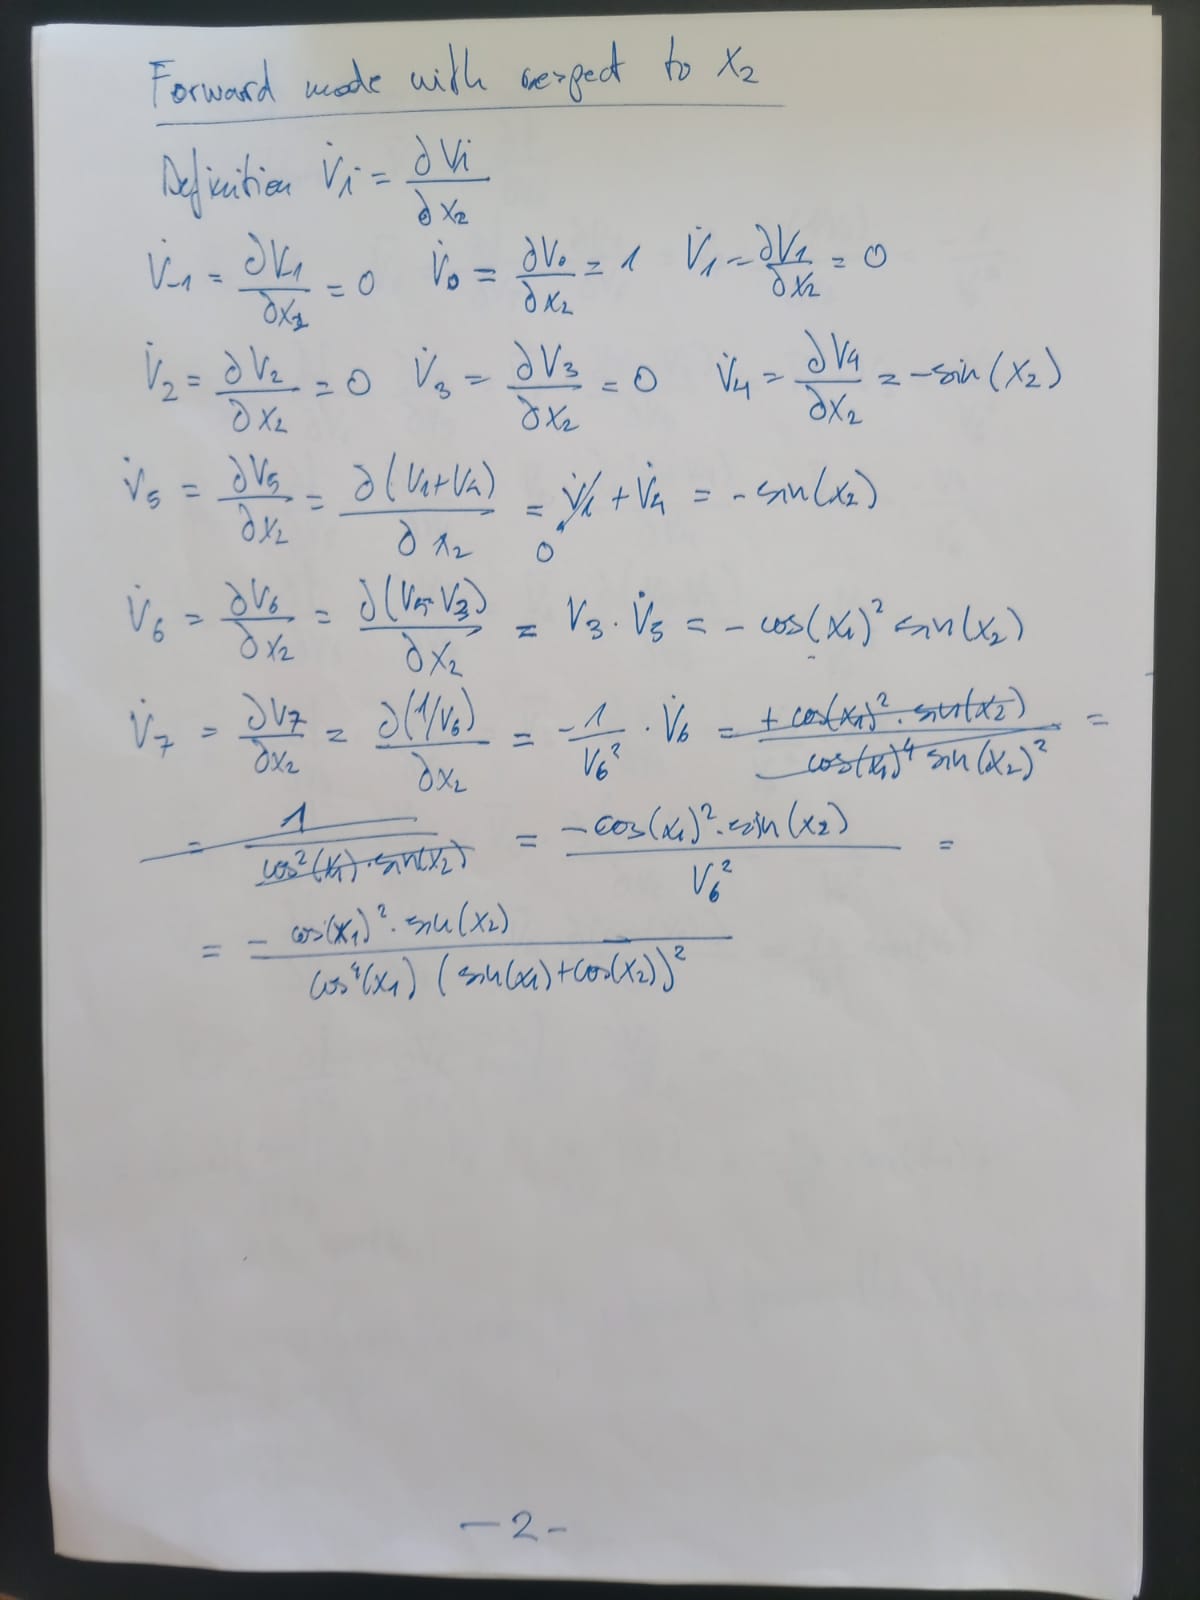 Forward mode with respect to x₂
Definition V̇i = ∂Vi/∂x₂
V̇₋₁ = ∂V₋₁/∂x₂ = 0 V̇₀ = ∂V₀/∂x₂ = 1 V̇₁ = ∂V₁/∂x₂ = 0
V̇₂ = ∂V₂/∂x₂ = 0 V̇₃ = ∂V₃/∂x₂ = 0 V̇₄ = ∂V₄/∂x₂ = -sin(x₂)
V̇₅ = ∂V₅/∂x₂ = ∂(V₁+V₄)/∂x₂ = V̇₁ + V̇₄ = -sin(x₂)
0
V̇₆ = ∂V₆/∂x₂ = ∂(V₅·V₃)/∂x₂ = V₃·V̇₅ = -cos(x₁)² sin(x₂)
V̇₇ = ∂V₇/∂x₂ = ∂(1/V₆)/∂x₂ = -1/V₆² · V̇₆ = +cos(x₁)²·sin(x₂)/cos(x₁)⁴ sin(x₂)² =
= 1/cos²(x₁)·sin(x₂) = -cos(x₁)²·sin(x₂)/V₆² =
= - cos(x₁)²·sin(x₂)/cos⁴(x₁) (sin(x₁)+cos(x₂))²
-2-